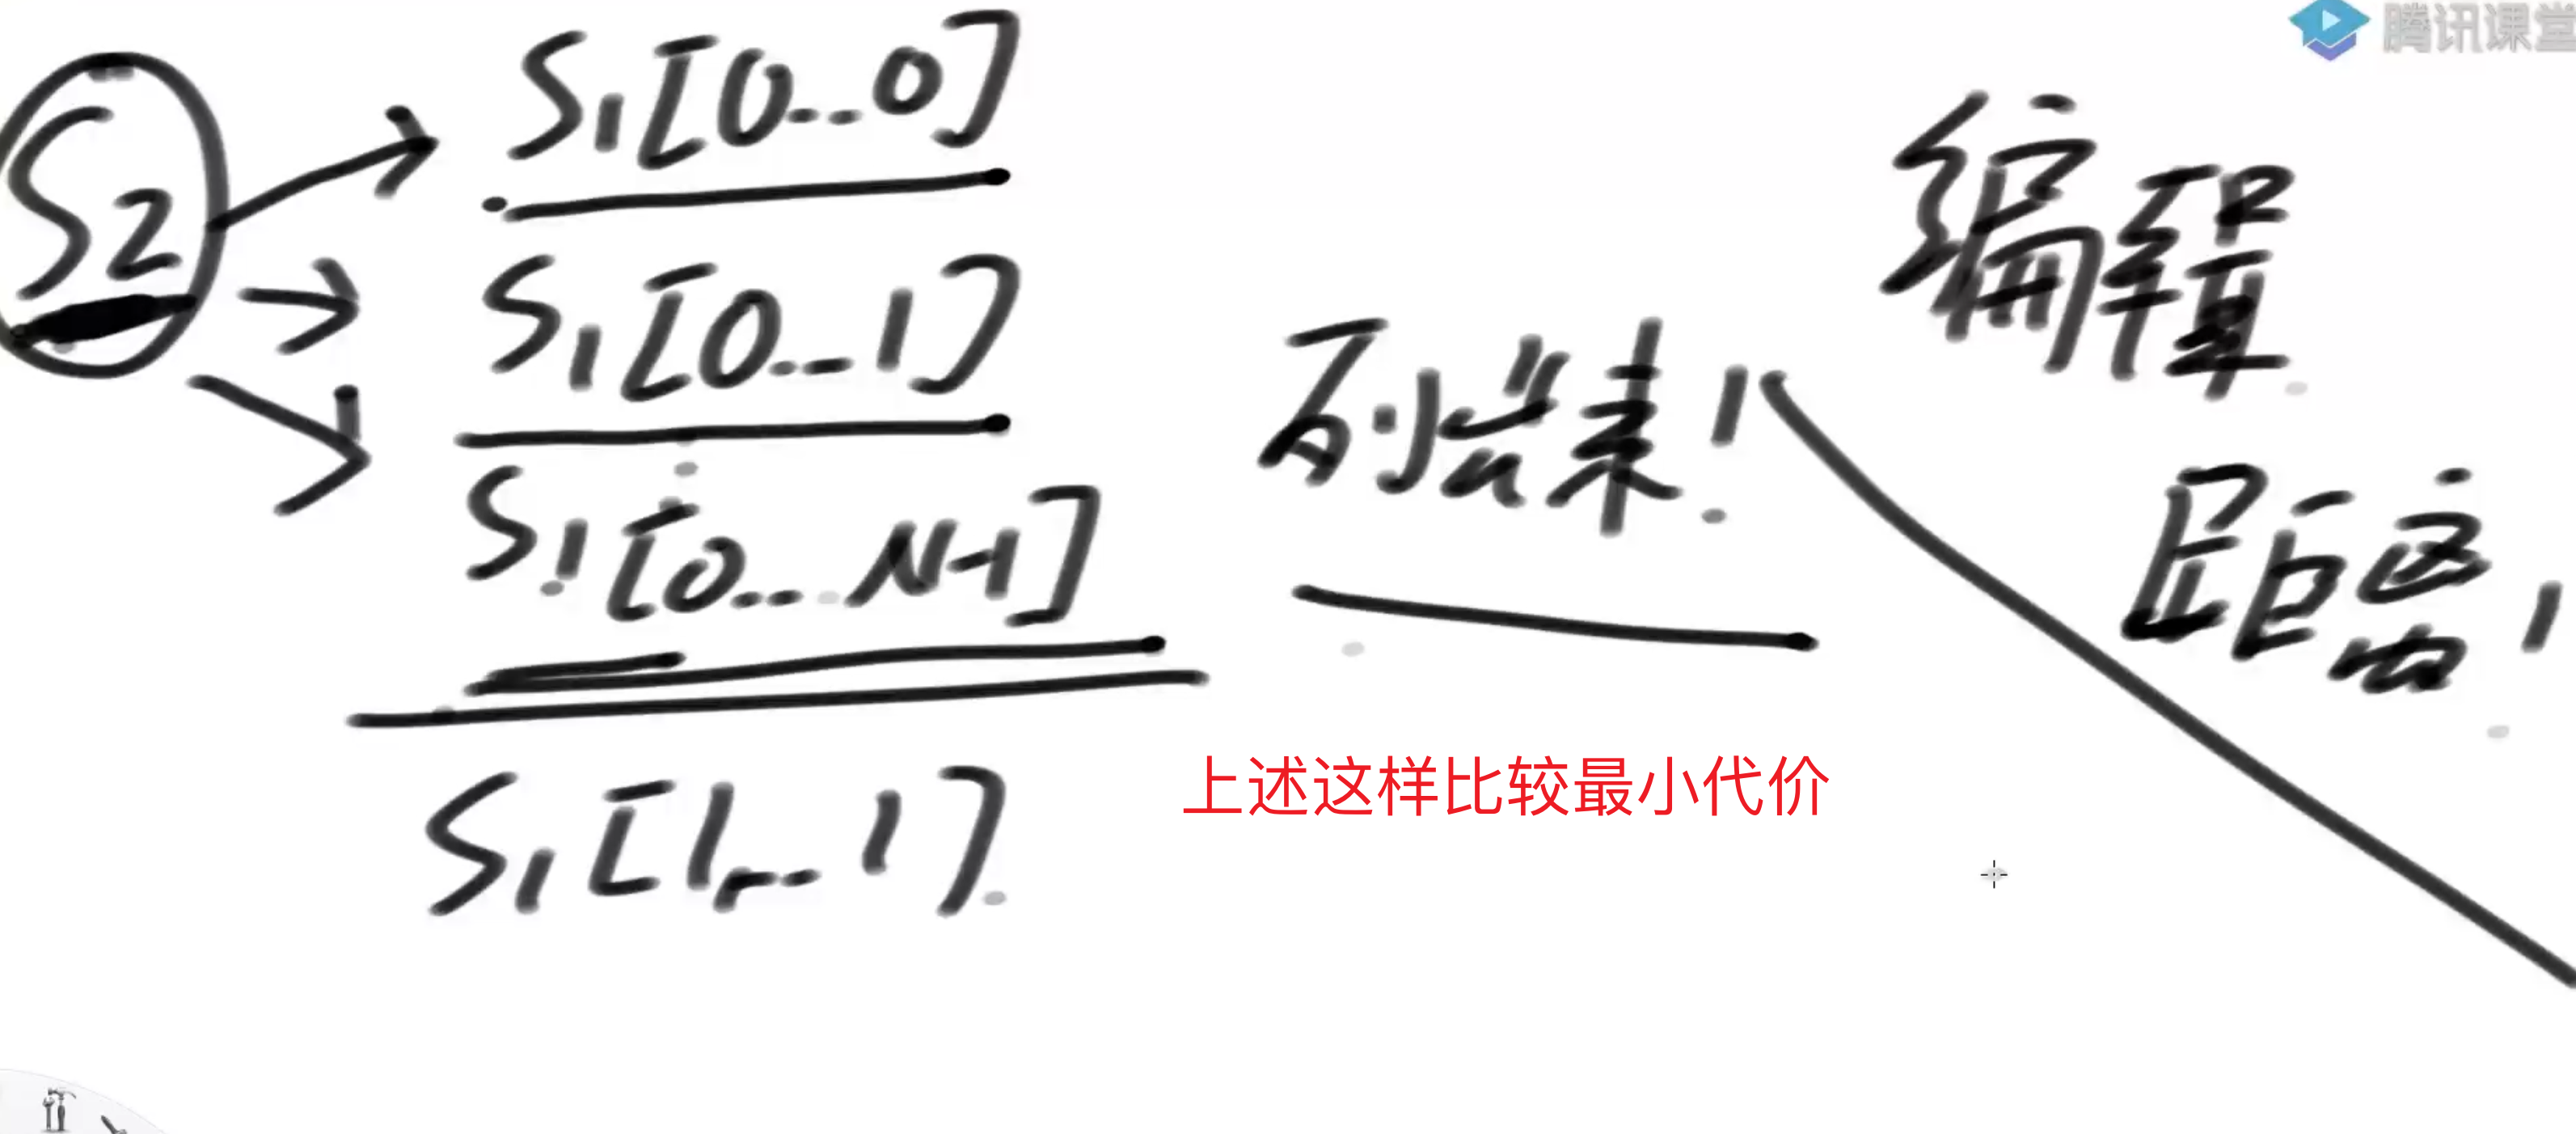 腾讯课堂
S2
S1[0...0]
S1[0...1]
S1[0...N-1]
S1[1...1]
列出来!
编辑
距离,
上述这样比较最小代价